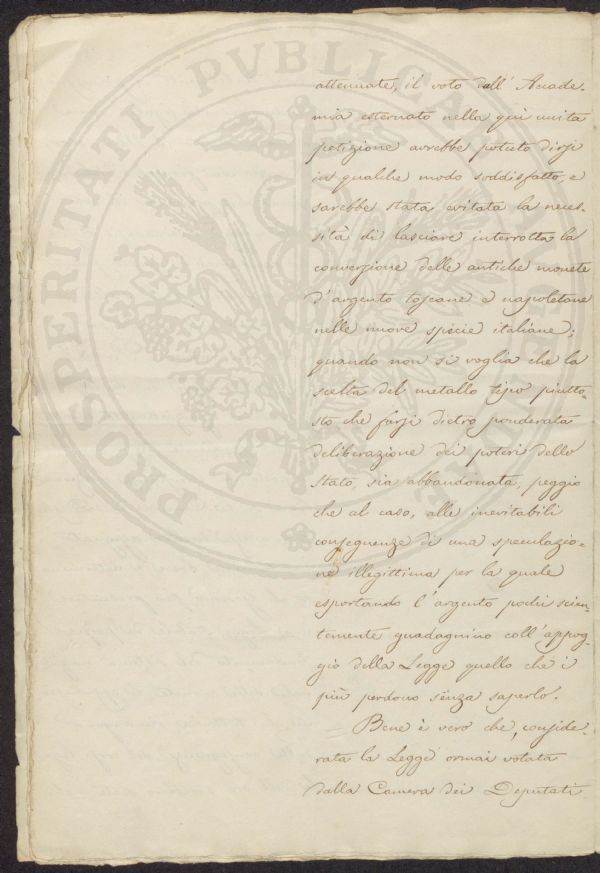 PROSPERITATI PVBLICAE AVGENDAE
attenuate, il voto dell' Accade-
mia esternato nella quì unita
petizione avrebbe potuto dirsi
in qualche modo soddisfatto, e
sarebbe stata evitata la neces-
sità di lasciare interrotta la
conversione delle antiche monete
d'argento toscane e napoletane
nelle nuove specie italiane;
quando non si voglia che la
scelta del metallo tipo piutto-
sto che farsi dietro ponderata
deliberazione dei poteri dello
Stato, sia abbandonata, peggio
che al caso, alle inevitabili
conseguenze di una speculazio-
ne illegittima per la quale
esportando l'argento pochi scien-
temente guadagnino coll'appog-
gio della Legge quello che i
più perdono senza saperlo.
Bene è vero che, conside-
rata la Legge ormai votata
dalla Camera dei Deputati